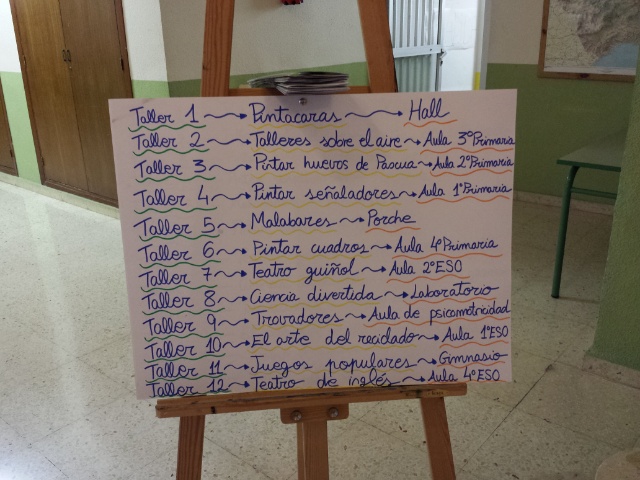 Taller 1 → Pintacaras → Hall
Taller 2 → Talleres sobre el aire → Aula 3º Primaria
Taller 3 → Pintar huevos de Pascua → Aula 2º Primaria
Taller 4 → Pintar señaladores → Aula 1º Primaria
Taller 5 → Malabares → Porche
Taller 6 → Pintar cuadros → Aula 4º Primaria
Taller 7 → Teatro guiñol → Aula 2º ESO
Taller 8 → Ciencia divertida → Laboratorio
Taller 9 → Trovadores → Aula de psicomotricidad
Taller 10 → El arte del reciclado → Aula 1º ESO
Taller 11 → Juegos populares → Gimnasio
Taller 12 → Teatro de inglés → Aula 4º ESO